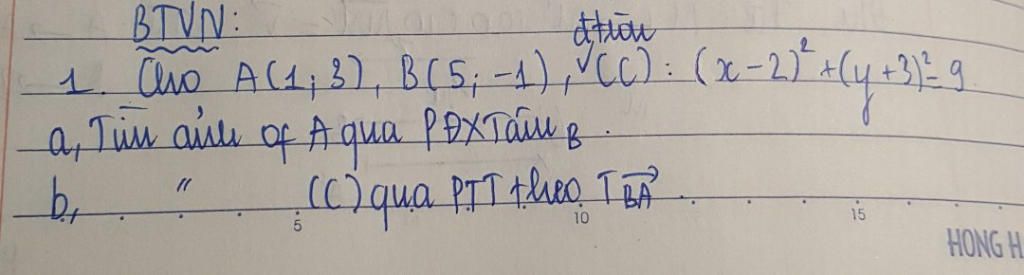 BTVN:
đtròn
1. Cho A(1; 3), B(5; -1), ∨(C): (x-2)² + (y+3)² = 9
a, Tìm ảnh of A qua PĐXTâm B.
b, " (C) qua PTT theo T BA→
5 10 15
HONG H